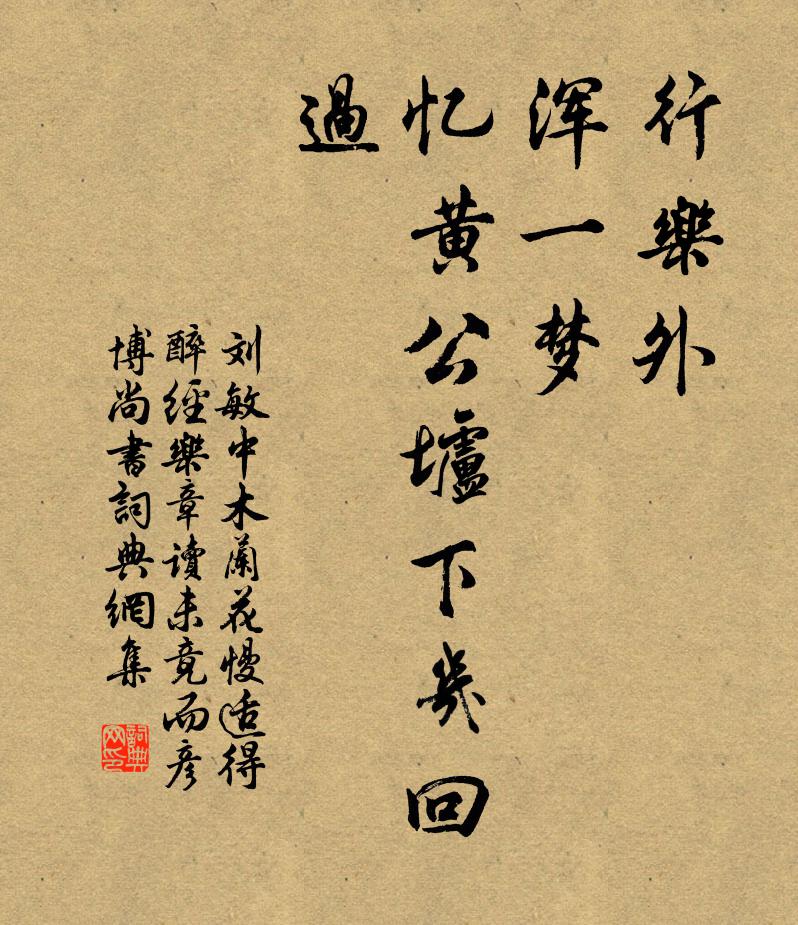 行樂外
浑一梦
忆黄公壚下幾回
過
刘敏中木蘭花慢适得
醉經樂章讀未竟而彦
博尚書詞典網集
詞典网印